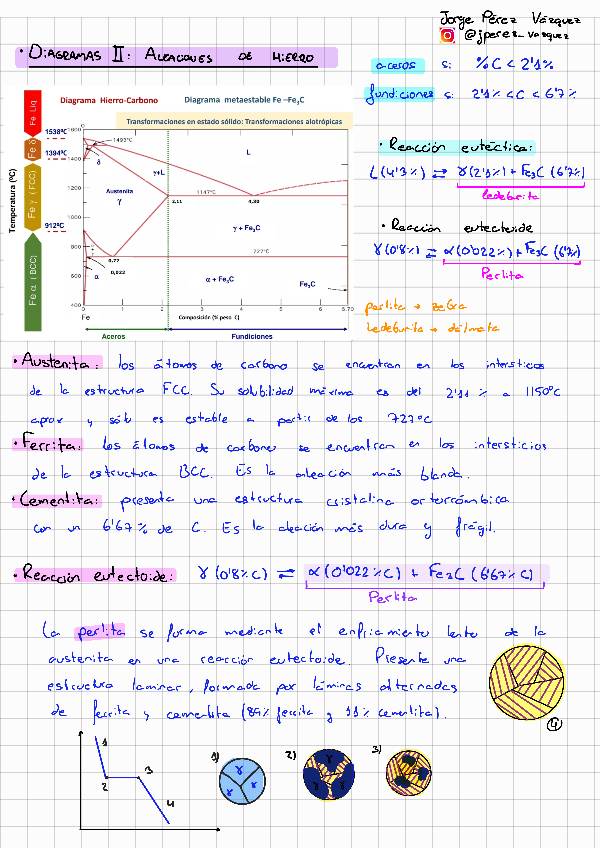 Jorge Pérez Vázquez
@jperez_vazquez
• DIAGRAMAS II: ALEACIONES DE HIERRO
aceros si %C < 2'11%
fundiciones si 2'11% < C < 6'7%
Diagrama Hierro-Carbono Diagrama metaestable Fe –Fe3C
Transformaciones en estado sólido: Transformaciones alotrópicas
Temperatura (ºC)
Fe Liq
Fe δ
Fe γ (FCC)
Fe α (BCC)
1538ºC
1394ºC
912ºC
1600
1400
1200
1000
800
600
400
1493ºC
δ
L
γ+L
Austenita
γ
1147ºC
2,11
4,30
γ + Fe3C
727ºC
0,77
0,022
α
α + Fe3C
Fe3C
0 1 2 3 4 5 6 6.70
Fe
Composición (% peso C)
Aceros Fundiciones
• Reacción eutéctica:
L(4'3%) ⇄ γ(2'1%) + Fe3C (6'7%)
ledeburita
• Reacción eutectoide
γ(0'8%) ⇄ α(0'022%) + Fe3C (6'7%)
Perlita
perlita → zebra
ledeburita → dálmata
• Austenita: los átomos de carbono se encuentran en los intersticios
de la estructura FCC. Su solubilidad máxima es del 2'11 % a 1150ºC
aprox y sólo es estable a partir de los 727ºC
• Ferrita: los átomos de carbono se encuentran en los intersticios
de la estructura BCC. Es la aleación más blanda.
• Cementita: presenta una estructura cristalina ortorrómbica
con un 6'67% de C. Es la aleación más dura y frágil.
• Reacción eutectoide: γ (0'8%C) ⇄ α(0'022%C) + Fe3C (6'67%C)
Perlita
La perlita se forma mediante el enfriamiento lento de la
austenita en una reacción eutectoide. Presenta una
estructura laminar, formada por láminas alternadas
de ferrita y cementita (89% ferrita y 11% cementita).
4
1
2
3
4
1)
γ
γ
γ
2)
γ
3)